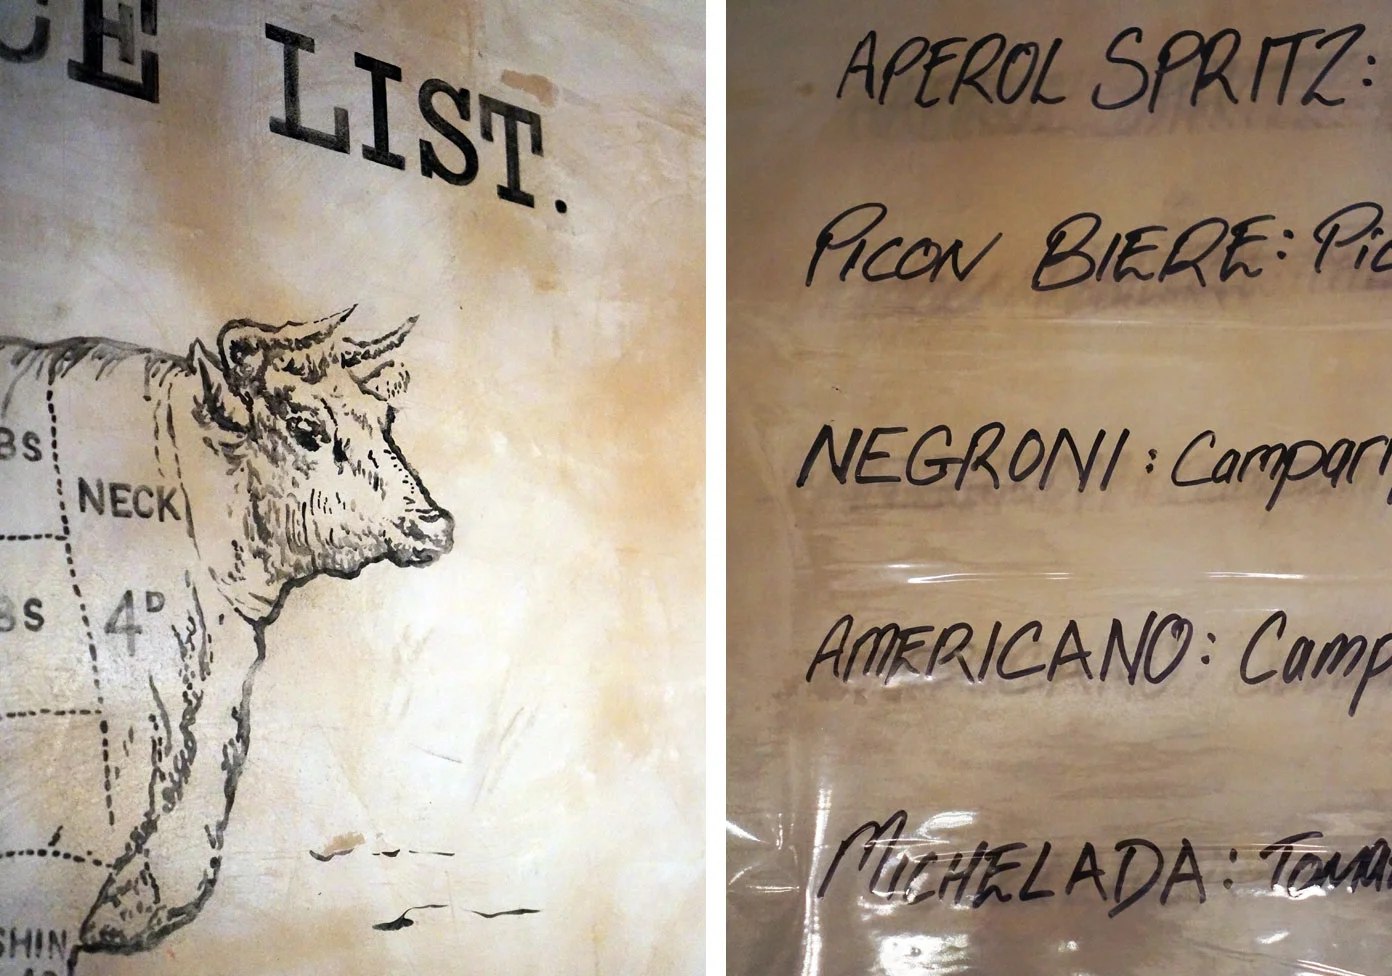 CE LIST.
BS
NECK
BS
4D
SHIN
APEROL SPRITZ:
PICON BIERE: Pic
NEGRONI: Campari
AMERICANO: Camp
MICHELADA: Toma